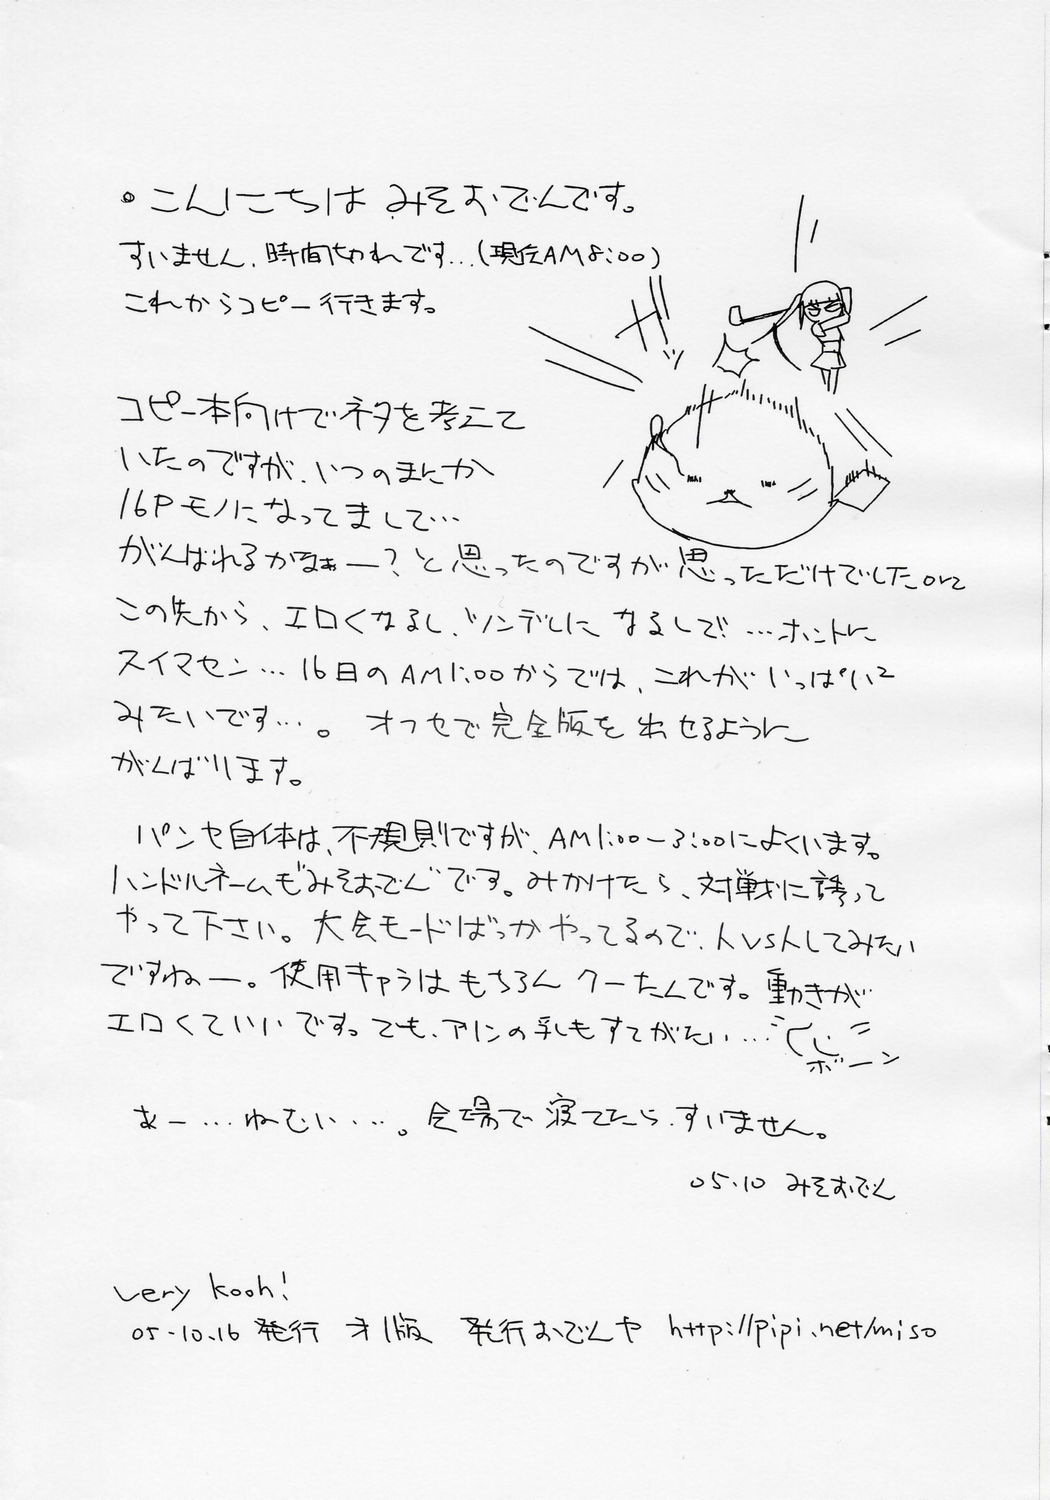 こんにちは みそおでんです。
すいません、時間切れです…(現在AM8:00)
これからコピー行きます。
コピー本向けでネタを考えて
いたのですが、いつのまにか
16Pモノになってまして…
がんばれるかなぁー?と思ったのですが思っただけでしたorz
この先から、エロくなるし、ツンデレになるしで!…ホントに
スイマセン…16日のAM1:00からでは、これがいっぱい2
みたいです…。オフセで完全版を出せるように
がんばります。
パンヤ自体は、不規則ですが、AM1:00-3:00によくいます。
ハンドルネームも"みそおでん"です。みかけたら、対戦に誘って
やって下さい。大会モードばっかやってるので、人vs人してみたい
ですねー。使用キャラはもちろん クーたんです。動きが
エロくていいです。でも、アリンの乳もすてがたい…
ボーン
あー…ねむい…。会場で寝てたら、すいません。
05.10 みそおでん
very kooh!
05.10.16 発行 オリ版 発行おでんや http://pipi.net/miso